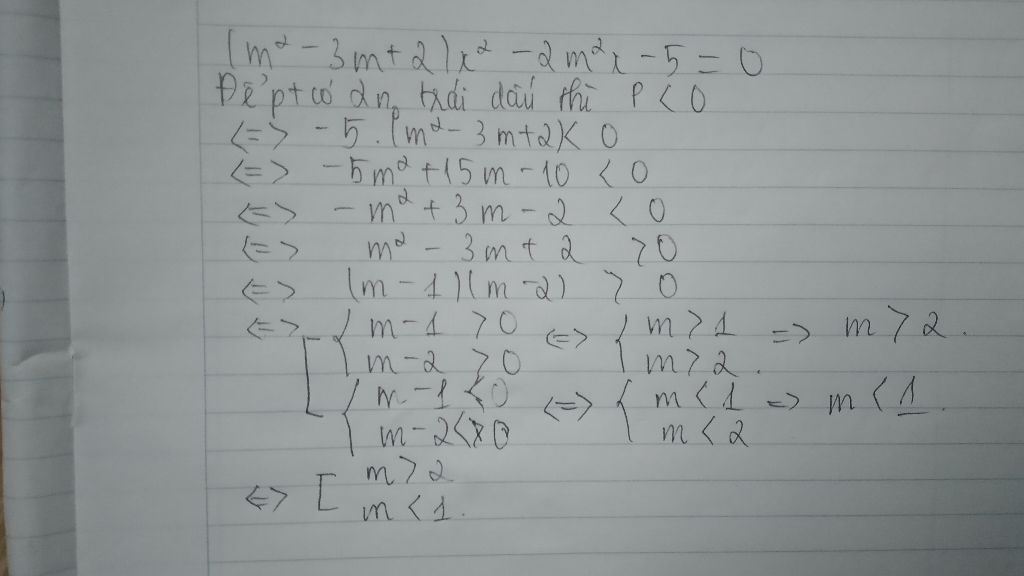 (m² - 3m + 2)x² - 2m²x - 5 = 0
Để pt có 2n₀ trái dấu thì P < 0
<=> -5.(m² - 3m + 2) < 0
<=> -5m² + 15m - 10 < 0
<=> -m² + 3m - 2 < 0
<=> m² - 3m + 2 > 0
<=> (m - 1)(m - 2) > 0
<=> [ { m - 1 > 0 <=> { m > 1 => m > 2.
m - 2 > 0 m > 2.
{ m - 1 < 0 <=> { m < 1 => m < 1.
m - 2 < 0 m < 2
<=> [ m > 2
m < 1.